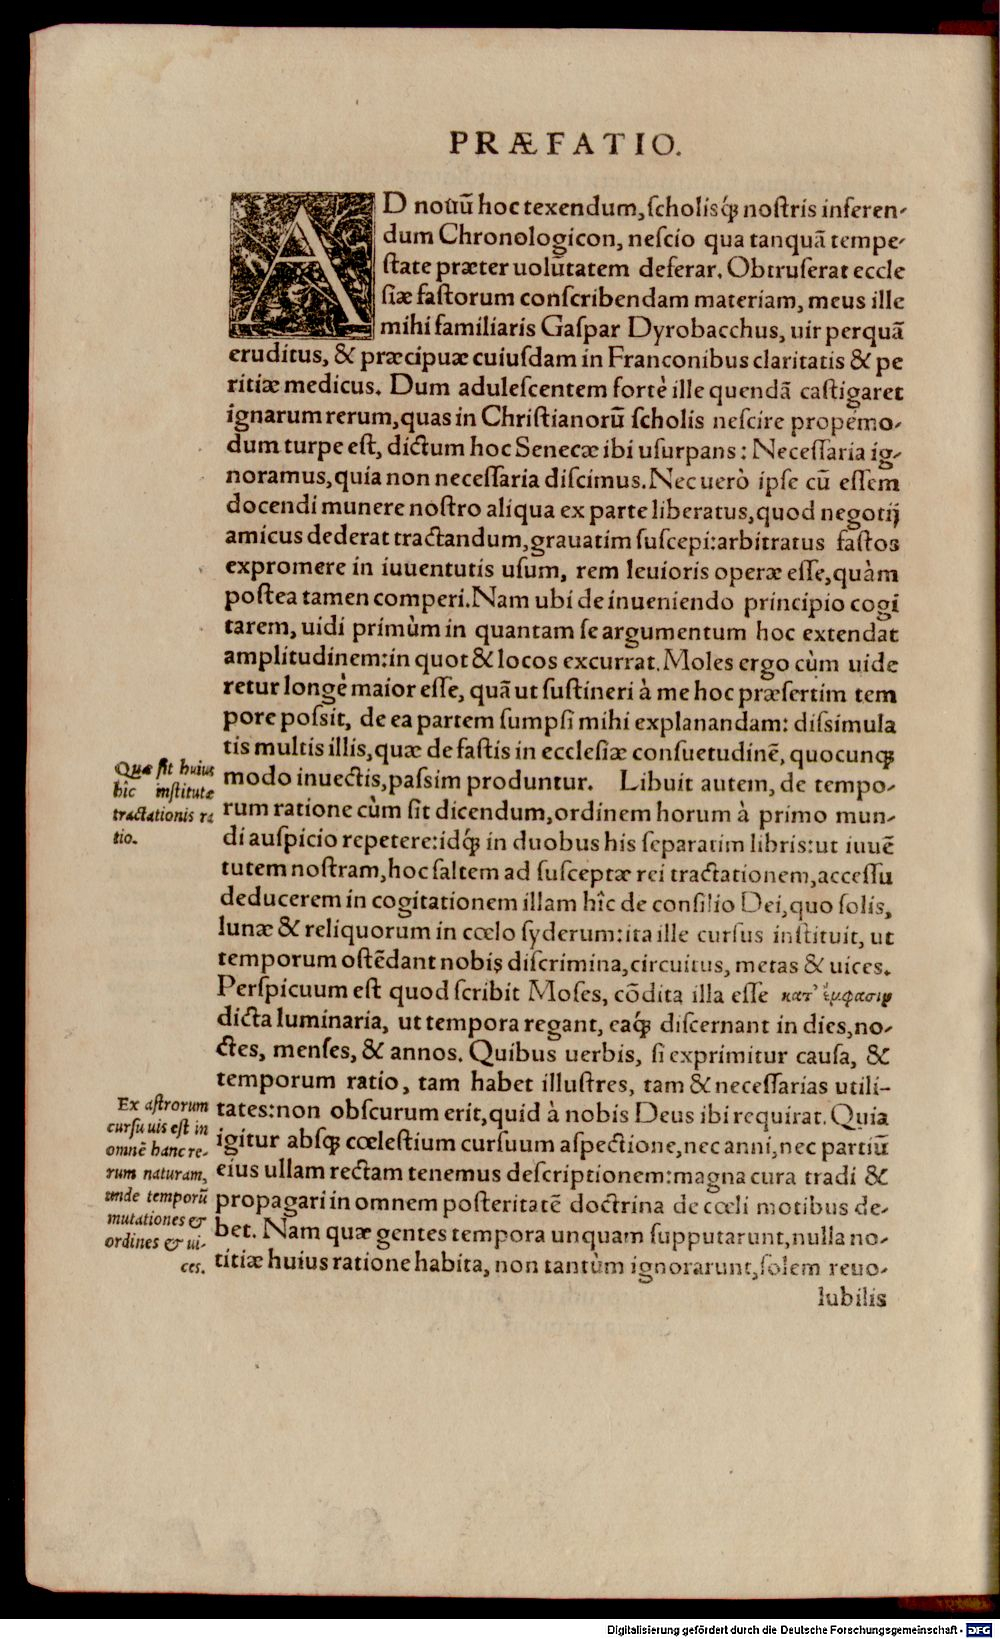 PRÆFATIO.
AD nouū hoc texendum, ſcholisq́ꝫ noſtris inferen-
dum Chronologicon, neſcio qua tanquā tempe-
ſtate præter uolūtatem deferar. Obtruſerat eccle
ſiæ faſtorum conſcribendam materiam, meus ille
mihi familiaris Gaſpar Dyrobacchus, uir perquā
eruditus, & præcipuæ cuiuſdam in Franconibus claritatis & pe
ritiæ medicus. Dum aduleſcentem fortè ille quendā caſtigaret
ignarum rerum, quas in Chriſtianorū ſcholis neſcire propémo-
dum turpe eſt, dictum hoc Senecæ ibi uſurpans: Neceſſaria ig-
noramus, quia non neceſſaria diſcimus. Nec uerò ipſe cū eſſem
docendi munere noſtro aliqua ex parte liberatus, quod negotij
amicus dederat tractandum, grauatim ſuſcepi: arbitratus faſtos
expromere in iuuentutis uſum, rem leuioris operæ eſſe, quàm
poſtea tamen comperi. Nam ubi de inueniendo principio cogi
tarem, uidi primùm in quantam ſe argumentum hoc extendat
amplitudinem: in quot & locos excurrat. Moles ergo cùm uide
retur longè maior eſſe, quā ut ſuſtineri à me hoc præſertim tem
pore poſsit, de ea partem ſumpſi mihi explanandam: diſsimula
tis multis illis, quæ de faſtis in eccleſiæ conſuetudinē, quocunqꝫ
modo inuectis, paſsim produntur. Libuit autem, de tempo-
rum ratione cùm ſit dicendum, ordinem horum à primo mun-
di auſpicio repetere: idq́ꝫ in duobus his ſeparatim libris: ut iuuē
tutem noſtram, hoc ſaltem ad ſuſceptæ rei tractationem, acceſſu
deducerem in cogitationem illam hîc de conſilio Dei, quo ſolis,
lunæ & reliquorum in cœlo ſyderum: ita ille curſus inſtituit, ut
temporum oſtēdant nobis diſcrimina, circuitus, metas & uices.
Perſpicuum eſt quod ſcribit Moſes, cōdita illa eſſe κατ' ἔμφασιν
dicta luminaria, ut tempora regant, eaq́ꝫ diſcernant in dies, no-
ctes, menſes, & annos. Quibus uerbis, ſi exprimitur cauſa, &
temporum ratio, tam habet illuſtres, tam & neceſſarias utili-
tates: non obſcurum erit, quid à nobis Deus ibi requirat. Quia
igitur abſqꝫ cœleſtium curſuum aſpectione, nec anni, nec partiū
eius ullam rectam tenemus deſcriptionem: magna cura tradi &
propagari in omnem poſteritatē doctrina de cœli motibus de-
bet. Nam quæ gentes tempora unquam ſupputarunt, nulla no-
titiæ huius ratione habita, non tantùm ignorarunt, ſolem reuo-
lubilis
Quæ ſit huius
hîc inſtitutæ
tractationis ra
tio.
Ex aſtrorum
curſu uis eſt in
omnē hanc re-
rum naturam,
unde temporū
mutationes &
ordines & ui-
ces.
Digitalisierung gefördert durch die Deutsche Forschungsgemeinschaft - DFG